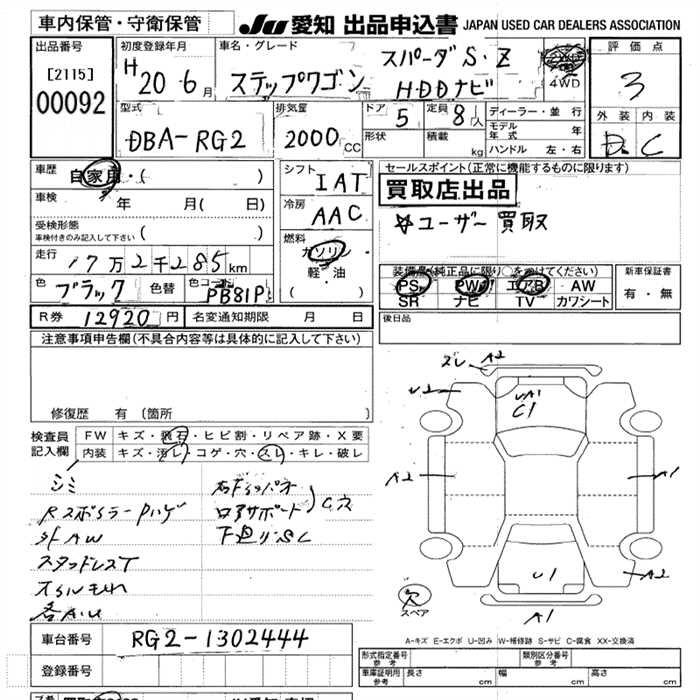 車内保管・守衛保管
JU 愛知 出品申込書 JAPAN USED CAR DEALERS ASSOCIATION
出品番号
[2115]
00092
初度登録年月
H 20 6月
車名・グレード
ステップワゴン スパーダS・Z
HDDナビ
4WD
評価点
3
外装 内装
D C
型式
DBA-RG2
排気量
2000CC
ドア
5
形状
定員
8人
積載 kg
ディーラー・並行
モデル年式 年
ハンドル 左・右
車歴
自家用・( )
車検 年 月( 日)
受検形態
車検付きのみ記入して下さい ( )
走行 17万2千285km
色 ブラック 色替 色コード PB81P
R券 12920円 名変通知期限 月 日
シフト
IAT
冷房
AAC
燃料
ガソリン
軽・油
( )
セールスポイント(正常に機能するものに限ります)
買取店出品
☆ユーザー買取
装備品(純正品に限り○をつけてください)
PS PW エアB AW
SR ナビ TV カワシート
新車保証書
有・無
後日品
注意事項申告欄(不具合内容等は具体的に記入して下さい)
修復歴 有 (箇所
検査員記入欄
FW キズ・飛石・ヒビ割・リペア跡・X要
内装 キズ・汚レ・コゲ・穴・スレ・キレ・破レ
シミ
Rスポイラー Pハゲ
社外AW
スタッドレスT
オイルもれ
各A.U
ロアサポート
下廻りS.C
ズレ A2
U2
UA1
C1
A2
A1
A2
U1
A1
穴
スペア
A-キズ E-エクボ U-凹み W-補修跡 S-サビ C-腐食 XX-交換済
車台番号 RG2-1302444
登録番号
形式指定番号 参考
類別区分番号 参考
車庫証明用 参考 長さ cm 幅 cm 高さ cm